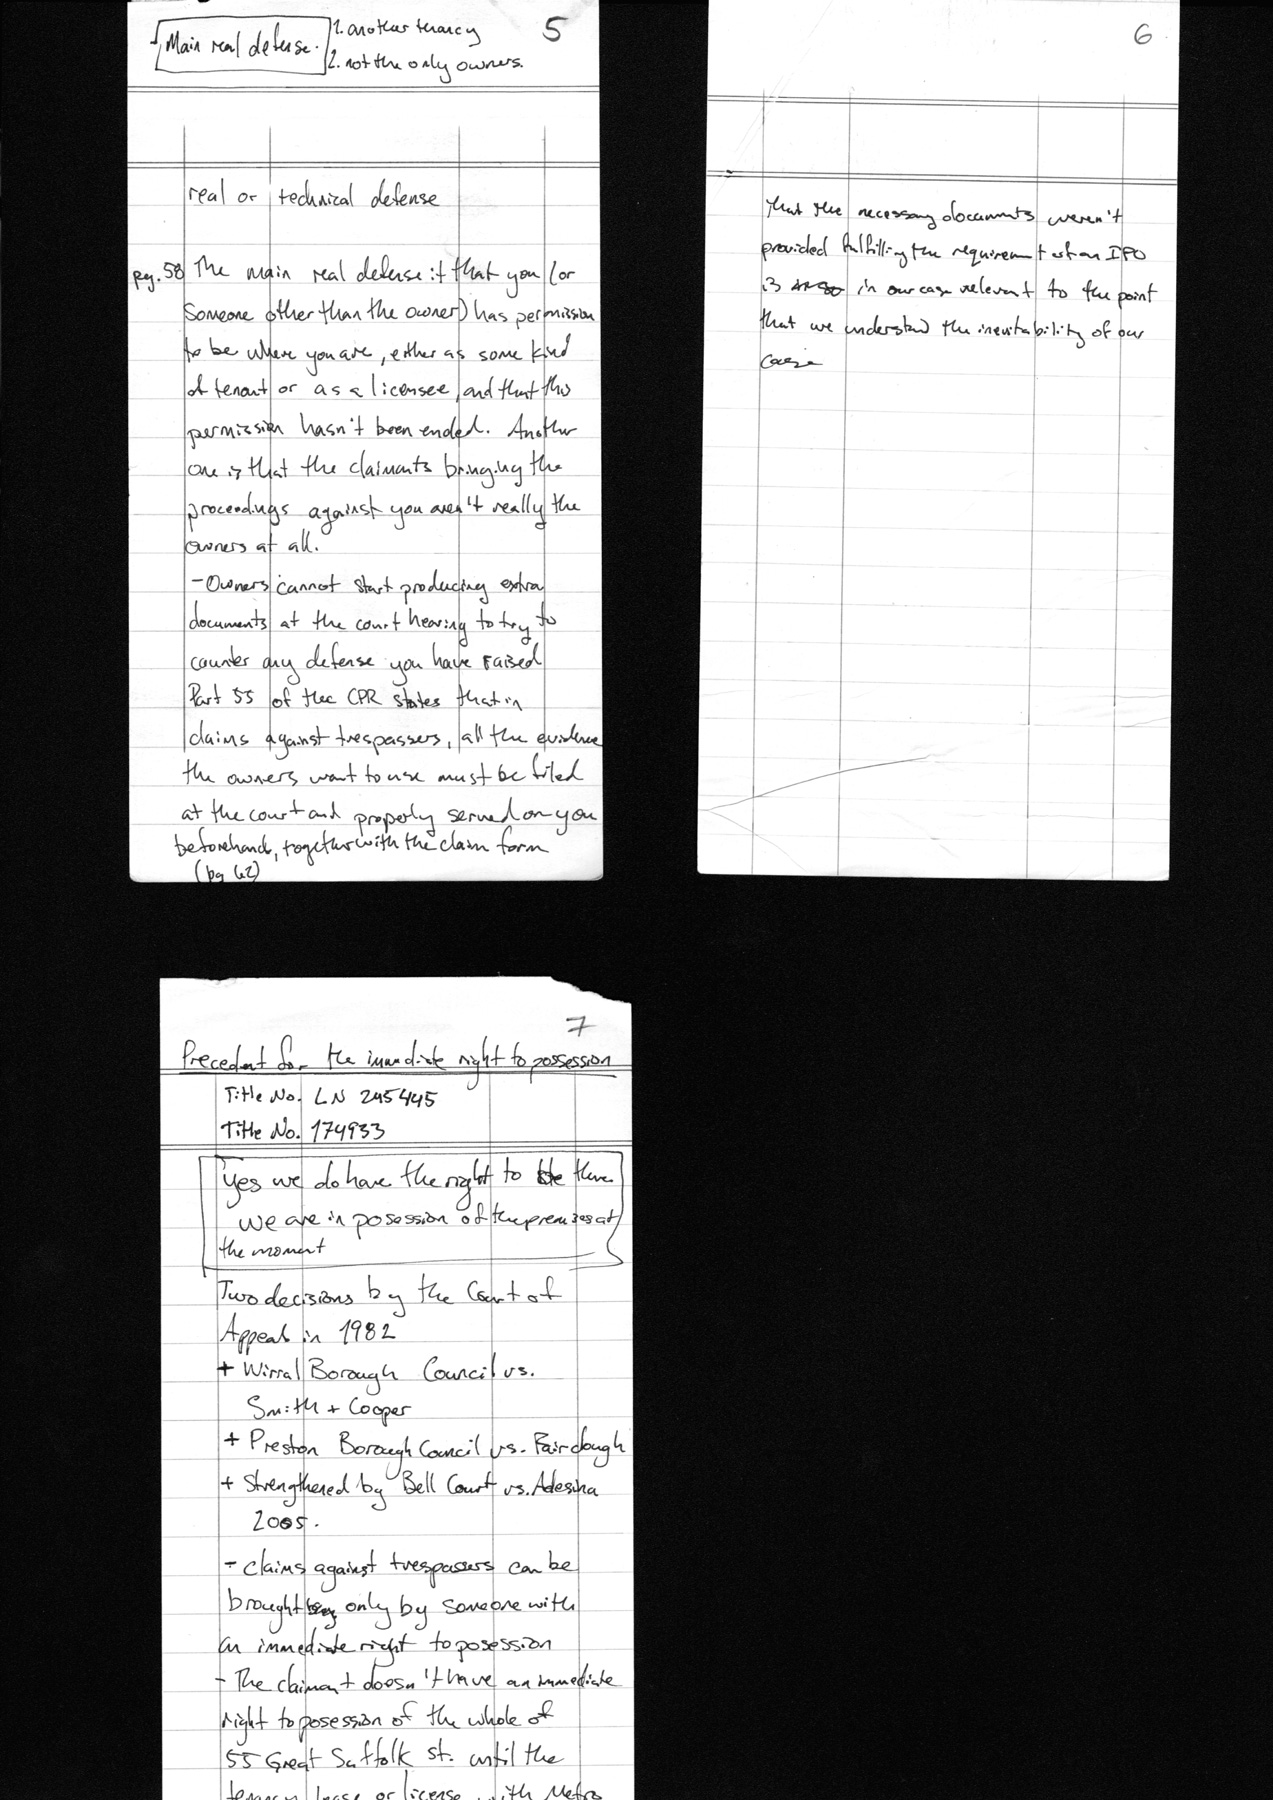 5
Main real defense.
1. another tenancy
2. not the only owners.
real or technical defense
pg. 58 The main real defense it that you (or
someone other than the owner) has permission
to be where you are, either as some kind
of tenant or as a licensee, and that this
permission hasn't been ended. Another
one is that the claimants bringing the
proceedings against you aren't really the
owners at all.
- Owners cannot start producing extra
documents at the court hearing to try to
counter any defense you have raised
Part 55 of the CPR states that in
claims against trespassers, all the evidence
the owners want to use must be filed
at the court and properly served on you
beforehand, together with the claim form
(pg 62)
6
that the necessary documents weren't
provided fulfilling the requirement of an IPO
is in our case relevant to the point
that we understand the inevitability of our
7
Precedent for the immediate right to possession
Title No. LN 245445
Title No. 174933
Yes we do have the right to be there
we are in posession of the premises at
the moment
Two decisions by the Court of
Appeal in 1982
+ Wirral Borough Council vs.
Smith + Cooper
+ Preston Borough Council vs. Fairclough
+ Strengthened by Bell Court vs. Adesina
2005.
- claims against trespassers can be
brought only by someone with
an immediate right to posession
- The claimant doesn't have an immediate
right to posession of the whole of
55 Great Suffolk st. until the
tenancy lease or license with Metro